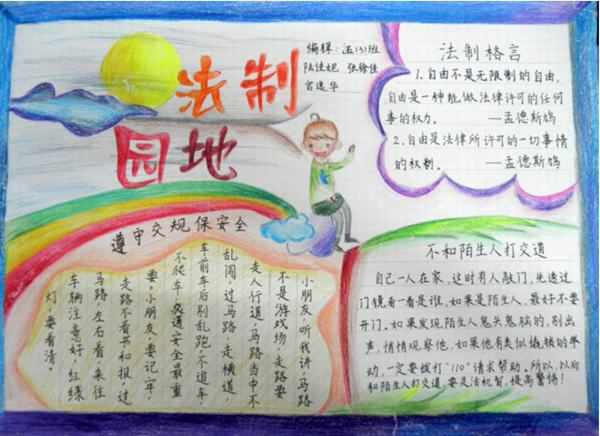 法制
园地
编辑:131班
法制格言
1.自由不是无限制的自由,
自由是一种能做法律许可的任何
事的权力。 —孟德斯鸠
2.自由是法律所许可的一切事情
的权制。 —孟德斯鸠
遵守交规保安全
小朋友,听我讲,马路
不是游戏场,走路要
走人行道,马路当中不
乱闯,过马路,走横道
车前车后别乱跑,不追车,
不爬车,交通安全最重
要。小朋友,要记牢,
走路不看书和报,过
马路左右看,来往
车辆注意好,红绿
灯,要看清。
不和陌生人打交道
自己一人在家,这时有人敲门,先透过
门镜看一看是谁,如果是陌生人,最好不要
开门。如果发现陌生人鬼头鬼脑的,别出
声,悄悄观察他,如果他有类似撬楼的举
动,一定要拨打“110”请求帮助。所以,以后
和陌生人打交道,要灵活机智,提高警惕!